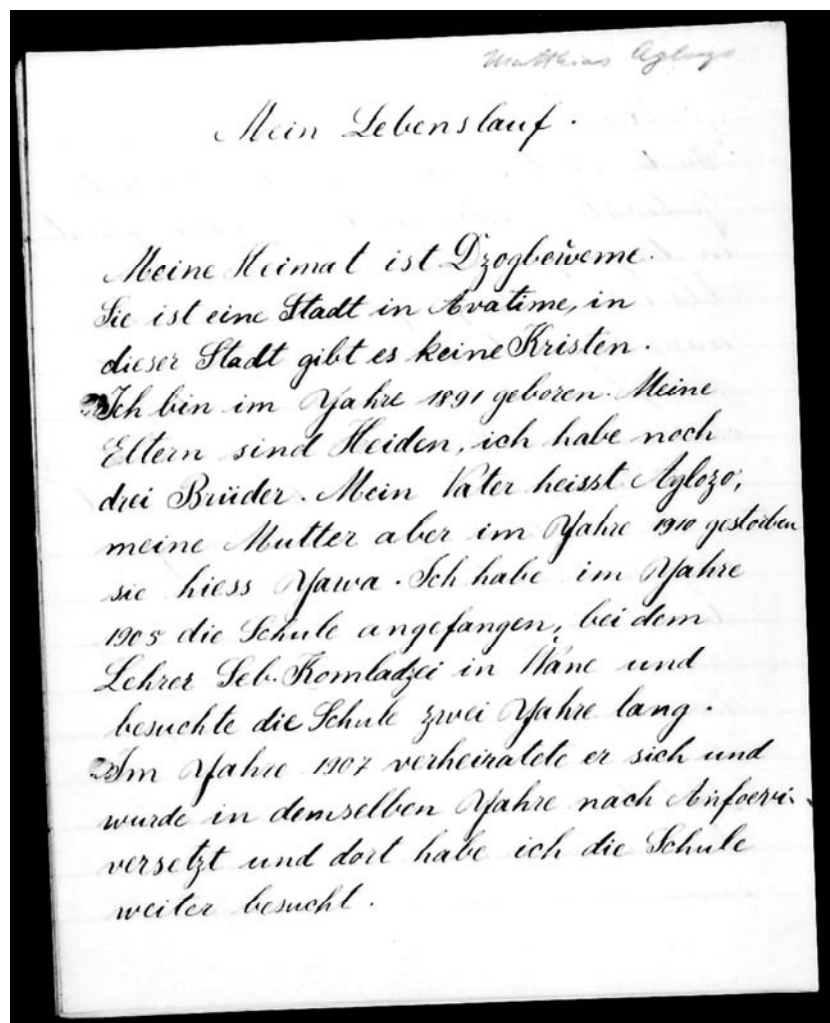 Matthias Aglozo
Mein Lebenslauf.
Meine Heimat ist Dzogbeweme.
Sie ist eine Stadt in Avatime, in
dieser Stadt gibt es keine Kristen.
Ich bin im Yahre 1891 geboren. Meine
Eltern sind Heiden, ich habe noch
drei Brüder. Mein Vater heisst Aglozo,
meine Mutter aber im Yahre 1910 gestorben
sie hiess Yawa. Ich habe im Yahre
1905 die Schule angefangen, bei dem
Lehrer Seb. Komladzei in Wane und
besuchte die Schule zwei Yahre lang.
Im Yahre 1907 verheiratete er sich und
wurde in demselben Yahre nach Anfoevi
versetzt und dort habe ich die Schule
weiter besucht.